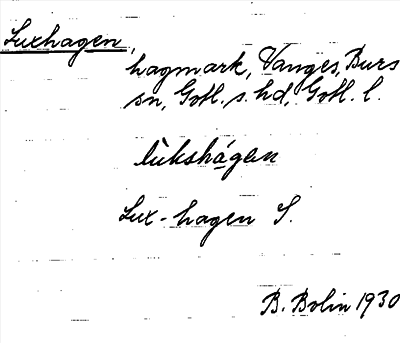 Luxhagen,
hagmark, Vanges, Burs
sn, Gotl. s. hd, Gotl. l.
lùkshágan
Lux-hagen S.
B. Bolin 1930